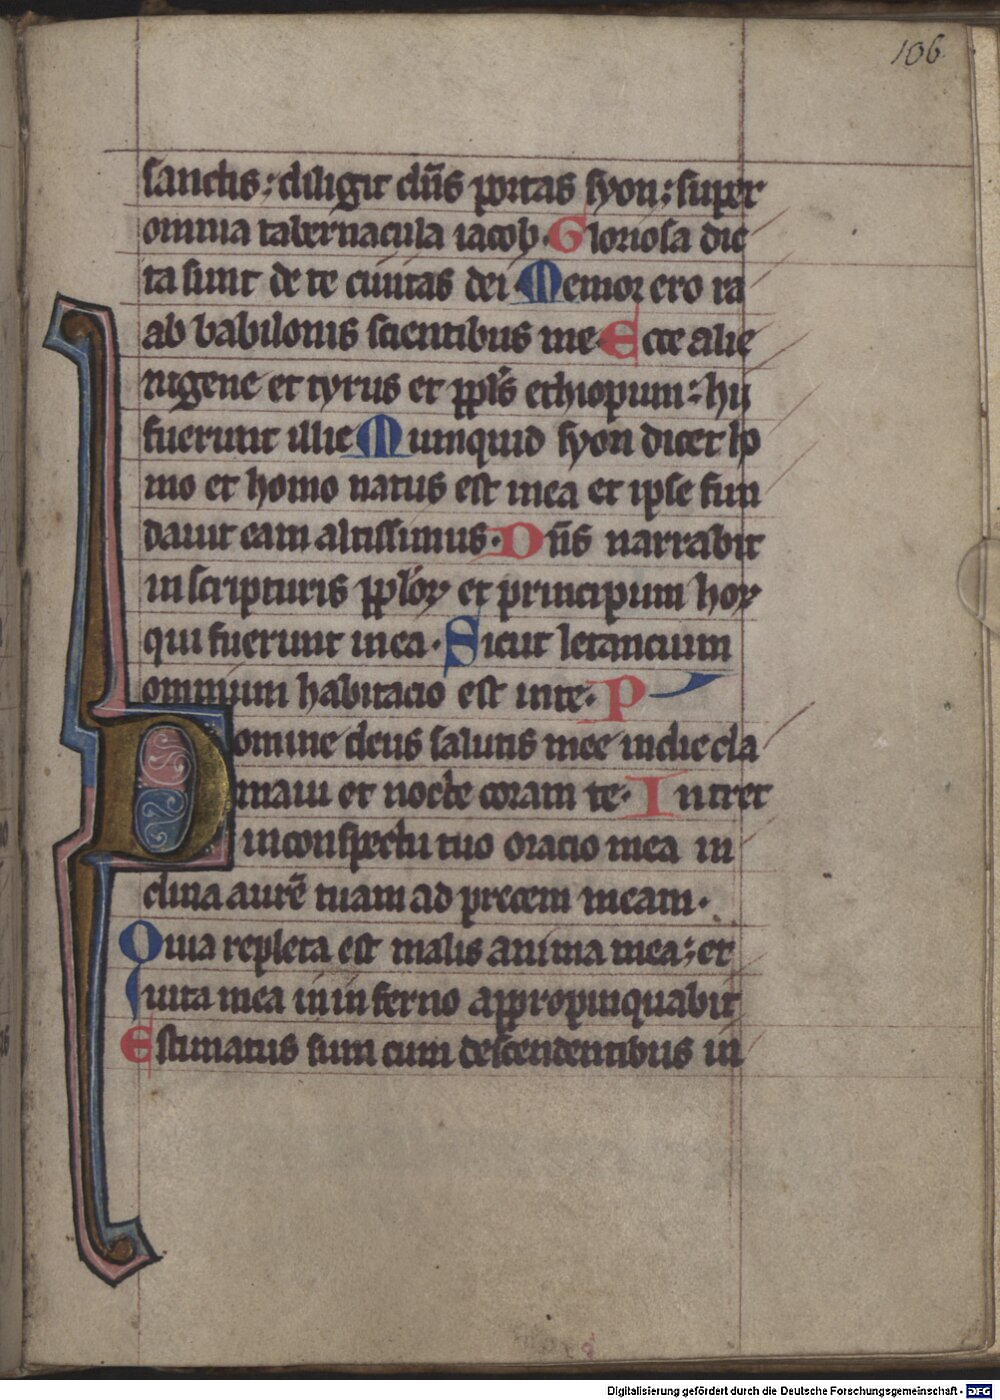 106
sanctis: diligit dn̄s portas syon: super
omnia tabernacula iacob. Gloriosa dic
ta sunt de te ciuitas dei. Memor ero ra
ab babilonis scientibus me. Ecce alie
nigene et tyrus et ppl̄s ethiopum: hii
fuerunt illic. Numquid syon dicet ho
mo et homo natus est in ea et ipse fun
dauit eam altissimus. Dn̄s narrabit
in scripturis ppl̄oꝝ et principum hoꝝ
qui fuerunt in ea. Sicut letancium
omnium habitacio est in te. P
Domine deus salutis mee in die cla
maui et nocte coram te. Intret
in conspectu tuo oracio mea in
clina aurē tuam ad precem meam.
Quia repleta est malis anima mea: et
uita mea in inferno appropinquabit
Estimatus sum cum descendentibus in
Digitalisierung gefördert durch die Deutsche Forschungsgemeinschaft - DFG